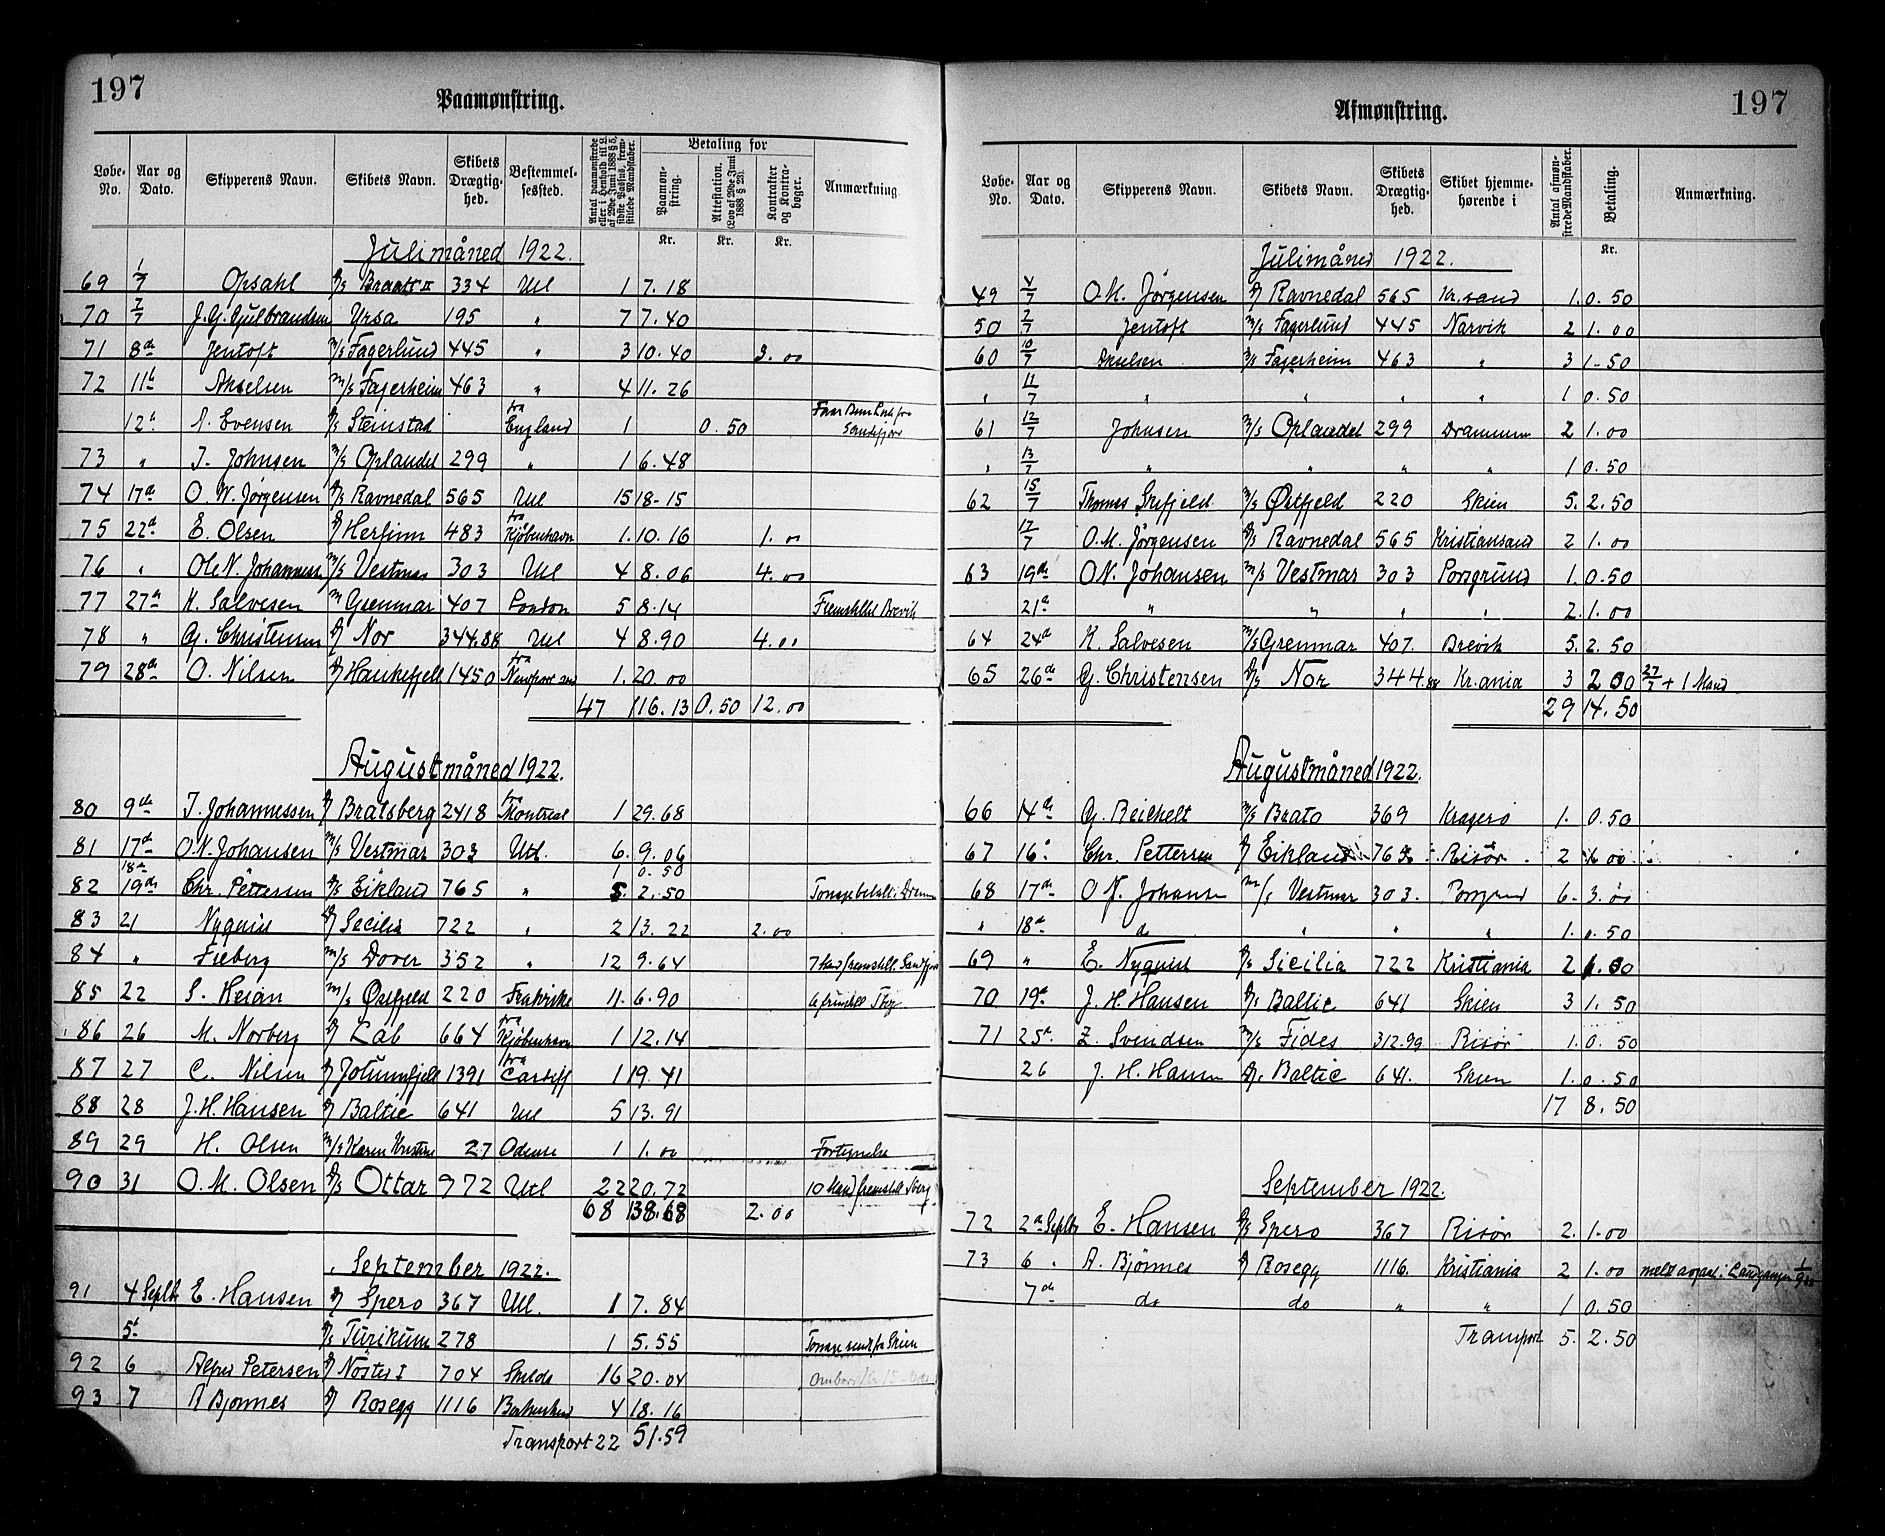 197
Paamønstring.
Løbe-No. Aar og Dato. Skipperens Navn. Skibets Navn. Skibets Drægtighed. Bestemmelsessted. Antal paamønstrede eller i Henhold til L. af 29de Juni 1888 § 5, sidste Passus, fremstillede Mandskaber. Betaling for Paamønstring. Attestation. (Lov af 29de Juni 1888 § 23). Kontrakter og Kontrabøger. Anmærkning.
Kr. Kr. Kr.
Julimåned 1922.
69 1/7 Opsahl D/S Braatt II 334 Utl 1 7.18
70 2/7 J. G. Gulbrandsen Yrsa 195 " 7 7.40
71 8de Jentoft M/S Fagerlund 445 " 3 10.40 3.00
72 11te Akselsen M/S Fagerheim 463 " 4 11.26
12te A. Evensen D/S Steinstad fra England 1 0.50
73 " J. Johnsen M/S Oplandet 299 " 1 6.48
74 17de O. W. Jørgensen D/S Ravnedal 565 Utl 15 18.15
75 22de E. Olsen D/S Herfinn 483 fra Kjøbenhavn 1. 10.16 1.00
76 " Ole N. Johannessen M/S Vestmar 303 Utl 4 8.06 4.00
77 27de K. Salvesen M Grenmar 407 London 5 8.14 Fremstillet Brevik
78 " G. Christensen D/S Nor 344.88 Utl 4 8.90 4.00
79 28de O. Nilsen D/S Haukefjell 1450 fra Newport 1. 20.00
47 116.13 0.50 12.00
Augustmåned 1922.
80 9de J. Johannessen D/S Bratsberg 2418 fra Montreal 1 29.68
81 17de O. N. Johansen M/S Vestmar 303 Utl. 6. 9.06
18de 1 0.50
82 19de Chr. Pettersen D/S Eikland 765 " 5. 2.50
83 21 Nyquist D/S Secilia 722 " 2 13.22 2.00
84 " Fieberg M/S Dover 352 " 12 9.64 7 Mand fremstill. Sandefjord
85 22 S. Heian M/S Østfjeld 220 Frakrike 11. 6.90
86 26 M. Norberg D/S Lab 664 fra Kjøbenhavn 1 12.14
87 27 C. Nilsen D/S Jotunnfjell 1391 fra Cardiff 1 19.41
88 28 J. H. Hansen D/S Baltic 641 Utl 5 13.91
89 29 H. Olsen M/S Karen Kristine 27 Odense 1 1.00 Fortegnelse
90 31 O. M. Olsen D/S Ottar 972 Utl 22 20.72 10 Mand fremstill Tberg
68 138.68 2.00
September 1922.
91 4 Septbr E. Hansen D/S Spero 367 Utl. 1 7.84
5te D/S Turikum 278 1 5.55 Tonage sendt fra Skien
92 6 Alfred Petersen D/S Nöster I 704 Shelds 16 20.04
93 7 A Bjønnes D/S Rosegg 1116 4 18.16
Transport 22 51.59
197
Afmønstring.
Løbe-No. Aar og Dato. Skipperens Navn. Skibets Navn. Skibets Drægtighed. Skibet hjemmehørende i Antal afmønstrede Mandskaber. Betaling. Anmærkning.
Kr.
Julimåned 1922.
49 4/7 O. M. Jørgensen D/S Ravnedal 565 Kr.sand 1. 0.50
50 2/7 Jentoft M/S Fagerlund 445 Narvik 2 1.00
60 10/7 Akselsen M/S Fagerheim 463 " 3 1.50
" 11/7 " " " " 1 0.50
61 12/7 Johnsen M/S Oplandet 299 Drammen 2 1.00
" 13/7 " " " " 1 0.50
62 15/7 Thomas Skifjeld M/S Østfjeld 220 Skien 5. 2.50
17/7 O. M. Jørgensen D/S Ravnedal 565 Kristiansand 2 1.00
63 19de O N. Johansen M/S Vestmar 303 Porsgrund 1. 0.50
21de " " " " 2. 1.00
64 24de K. Salvesen M/S Grenmar 407. Brevik 5. 2.50
65 26de G. Christensen D/S Nor 344.88 Kr.ania 3 2.00 27/7 + 1 Mand
29 14.50
Augustmåned 1922.
66 14de G. Reichelt M/S Brato 369 Kragerø 1. 0.50
67 16de Chr. Pettersen D/S Eikland 765 Risør 2 1.00
68 17de O N. Johansen M/S Vestmar 303. Porsgrund 6. 3.00
" 18de do " " " 1. 0.50
69 " E. Nyquist D/S Sicilia 722 Kristiania 2 1.00
70 19de J. H. Hansen D/S Baltic 641 Skien 3 1.50
71 25de Z. Svendsen M/S Fides 312.99 Risør 1. 0.50
26 J. H. Hansen D/S Baltic 641. Skien 1. 0.50
17 8.50
September 1922.
72 2de Septbr E. Hansen D/S Spero 367 Risør 2. 1.00
73 6 " A. Bjønnes D/S Rosegg 1116. Kristiania 2 1.00
7de do do " " 1 0.50
Transport 5. 2.50